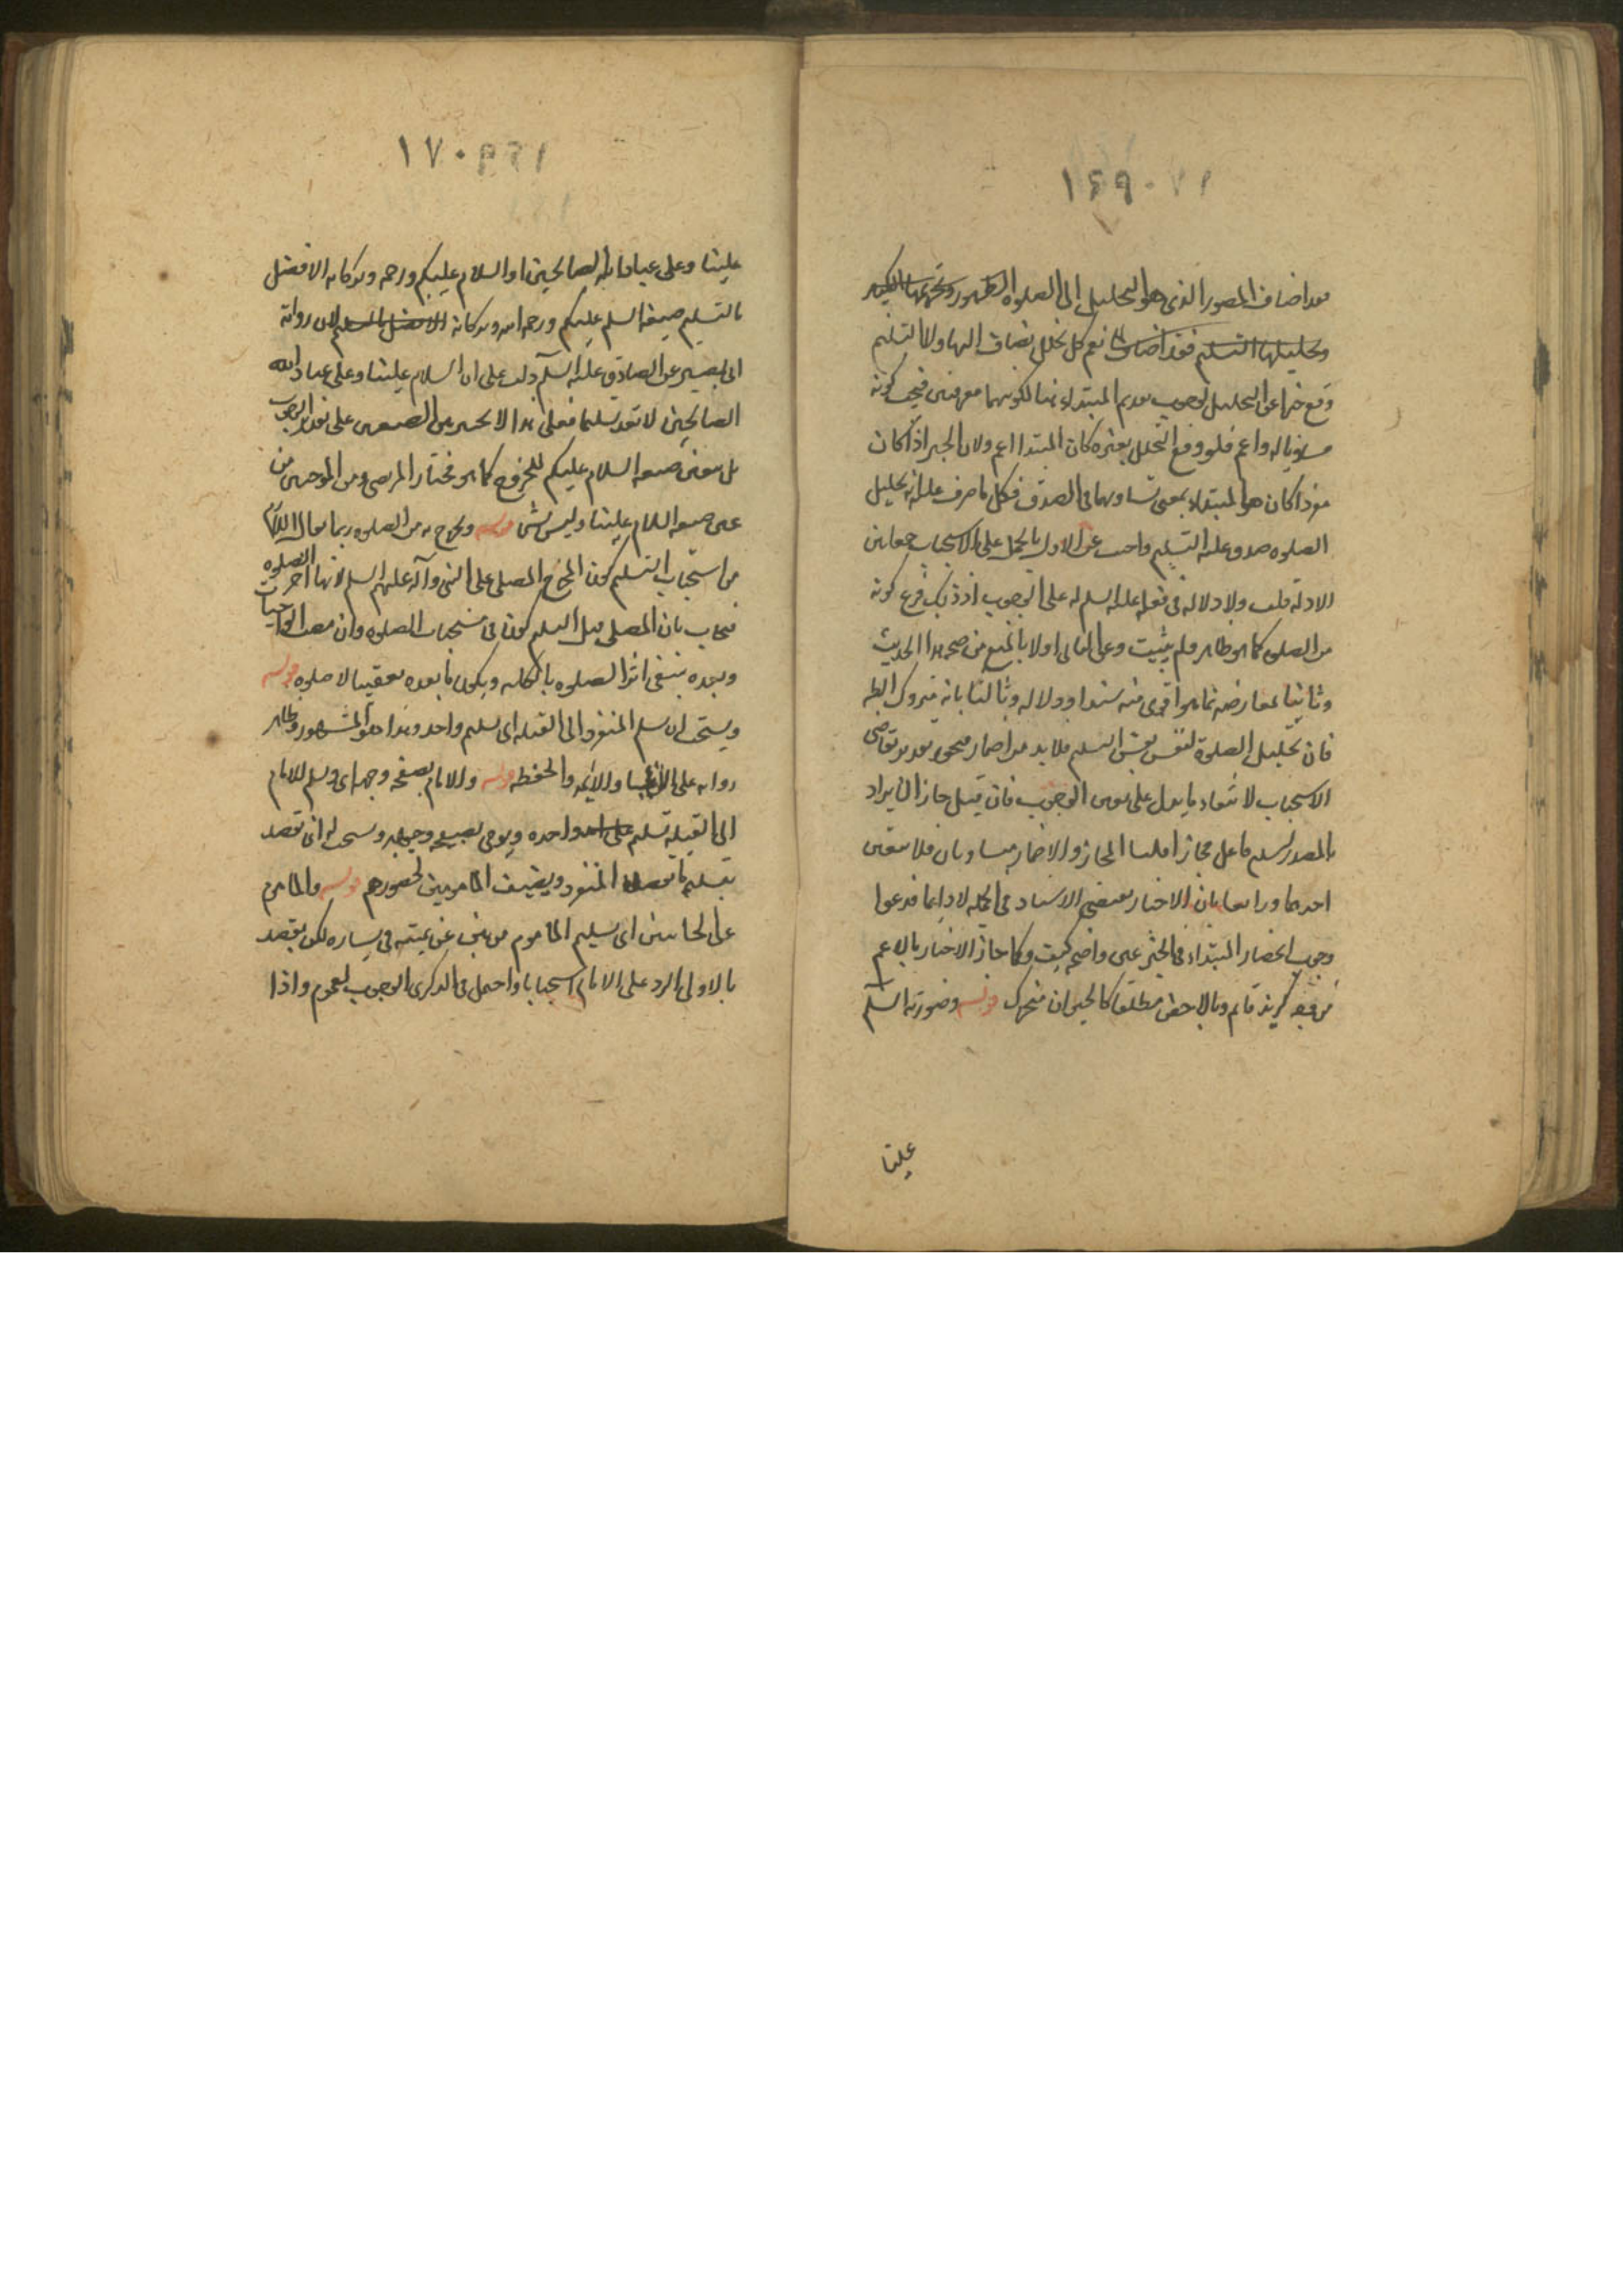 ١٦٩
فقد اضاف المصدر الذى هو التحليل إلى الصلوه الطهور وتحريمها التكبير
وتحليلها التسليم فقد اضاف نعم كل تحلل يضاف اليها ولان التسليم
وقع خبرا عن التحليل لوجوب تقديم المبتداء هنا لكونهما معرفتين فيجب كونه
مساويا له واعم فلو وقع التحلل بغيره كان المبتدا اعم ولان الخبر اذا كان
مفردا كان هو المبتداء بمعنى تساويهما فى الصدق فكل ما صدق عليه انه تحليل
الصلوه صدق عليه التسليم واجيب عن الاول بالحمل على الاستحباب جمعا بين
الادلة قلت ولا دلاله فى فعله عليه السلم له على الوجوب اذ ذلك فرع كونه
من الصلوه كما هو ظاهر ولم يثبت وعن الثانى اولا بالمنع من صحه هذا الحديث
وثانيا بمعارضه بما هو اقوى منه سندا ودلاله وثالثا بانه متروك الظ
فان تحليل الصلوة ليس نفس التسليم فلا بد من اضمار
الاستحباب لا يتعاد ما يدل على الوجوب فان قيل جاز ان يراد
بالمصدر اسم فاعل مجازا قلنا المجاز والاضمار متساويان فلا يتعين
احدهما ورابعا بان الاخبار يقتضى الاسناد فى الجمله لا دائما فدعوا
وجوب انحصار المبتداء فى الخبر غير واضحه كيف وكما جاز الاخبار بالاعم
من وجه كزيد قائم وبالاخص مطلقا كالحيوان متحرك قوله وصورته السلم
علينا
١٧٠
علينا وعلى عباد الله الصالحين او السلام عليكم ورحمه وبركاته الافضل
بالتسليم صيغه السلم عليكم ورحمه الله وبركاته الافضل التسليم لان رواية
ابى بصير عن الصادق عليه السلم دلت على ان السلام علينا وعلى عباد الله
الصالحين لا تعد تسليما فعلى هذا لا تخير بين الصيغتين على تقدير الوجوب
بل تعين صيغه السلام عليكم للخروج كما هو مختار المرتضى ومن الموجبين من
عين صيغه السلام علينا وليس بشى قوله ويخرج به من الصلوه ربما يقال اللازم
من استحباب التسليم كون المخرج المصلى على النبى وآله عليهم السلم لانها اخر الصلوه
فيجاب بان المصلى قبل التسليم كون فى مستحبات الصلوه وان مضت الواجبات
وبعده ينتفى اثر الصلوه بالكليه ويكون ما بعده تعقيبا لا صلوه قوله
ويستحب ان يسلم المنفرد الى القبله اى تسليم واحد وهذا هو المشهور وظاهر
روايه على الانبياء والائمه والحفظه قوله والامام بصفحه وجهه اى ويسلم الامام
الى القبله تسليم على احد واحده ويومى بصفحه وجهه ويستحب له ان يقصد
بتسليمه ما يقصده المنفرد ويضيف المامومين لحضورهم قوله والماموم
على الجانبين اى يسليم الماموم مرتين عن يمينه ويساره لكن يقصد
بالاولى الرد على الامام استحبابا واحتمل فى الذكرى الوجوب لعموم واذا